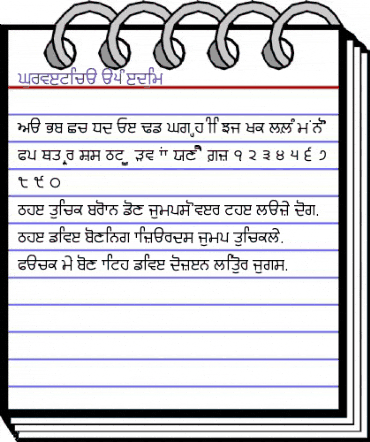 ਘੁਰਵੲਟਚਿੳ ੳਸ਼ੰ ੲਦੁਮਿ
ਅੳ ਭਬ ਛਚ ਧਦ ਓੲ ਢਡ ਘਗ ੍ਹਹ ੀਿ ਝਜ ਖਕ ਲਲ਼ ੰਮ ਂਨ ੌੋ
ਫਪ ਥਤ ੍ਰਰ ਸ਼ਸ ਠਟ ੂੁ ੜਵ ਾਂ ਯਣ ੈੇ ਗ਼ਜ਼ ੧ ੨ ੩ ੪ ੫ ੬ ੭
੮ ੯ ੦
ਠਹੲ ਤੁਚਿਕ ਬਰੋਾਨ ਡੋਣ ਜੁਮਪਸ ੋਵੲਰ ਟਹੲ ਲੳਜ਼ੇ ਦੋਗ.
ਠਹੲ ਡਵਿੲ ਬੋਣਨਿਗ ਾਜ਼ਿੳਰਦਸ ਜੁਮਪ ਤੁਚਿਕਲੇ.
ਫੳਚਕ ਮੇ ਬੋਣ ਾਟਿਹ ਡਵਿੲ ਦੋਜ਼ੲਨ ਲਤਿੁੋਰ ਜੁਗਸ.